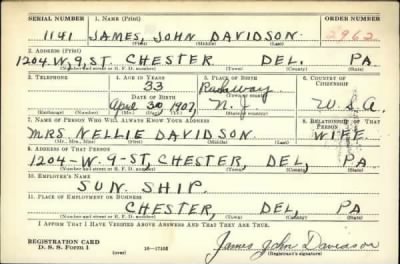 SERIAL NUMBER 1. NAME (Print) ORDER NUMBER
1141 JAMES, JOHN DAVIDSON. 2962
(First) (Middle) (Last)
2. ADDRESS (Print)
1204 W. 9, ST. CHESTER DEL. PA
(Number and street or R. F. D. number) (Town) (County) (State)
3. TELEPHONE 4. AGE IN YEARS 5. PLACE OF BIRTH 6. COUNTRY OF CITIZENSHIP
33 Rahway
DATE OF BIRTH (Town or county)
April 30, 1907, N. J. U.S.A.
(Exchange) (Number) (Mo.) (Day) (Yr.) (State or country)
7. NAME OF PERSON WHO WILL ALWAYS KNOW YOUR ADDRESS 8. RELATIONSHIP OF THAT PERSON
MRS. NELLIE DAVIDSON. WIFE
(Mr., Mrs., Miss) (First) (Middle) (Last)
9. ADDRESS OF THAT PERSON
1204-W. 9-ST, CHESTER, DEL, PA
(Number and street or R. F. D. number) (Town) (County) (State)
10. EMPLOYER'S NAME
SUN. SHIP.
11. PLACE OF EMPLOYMENT OR BUSINESS
CHESTER, DEL, PA
(Number and street or R. F. D. number) (Town) (County) (State)
I AFFIRM THAT I HAVE VERIFIED ABOVE ANSWERS AND THAT THEY ARE TRUE.
REGISTRATION CARD James John Davidson
D. S. S. Form 1 (over) 16-17105 (Registrant's signature)